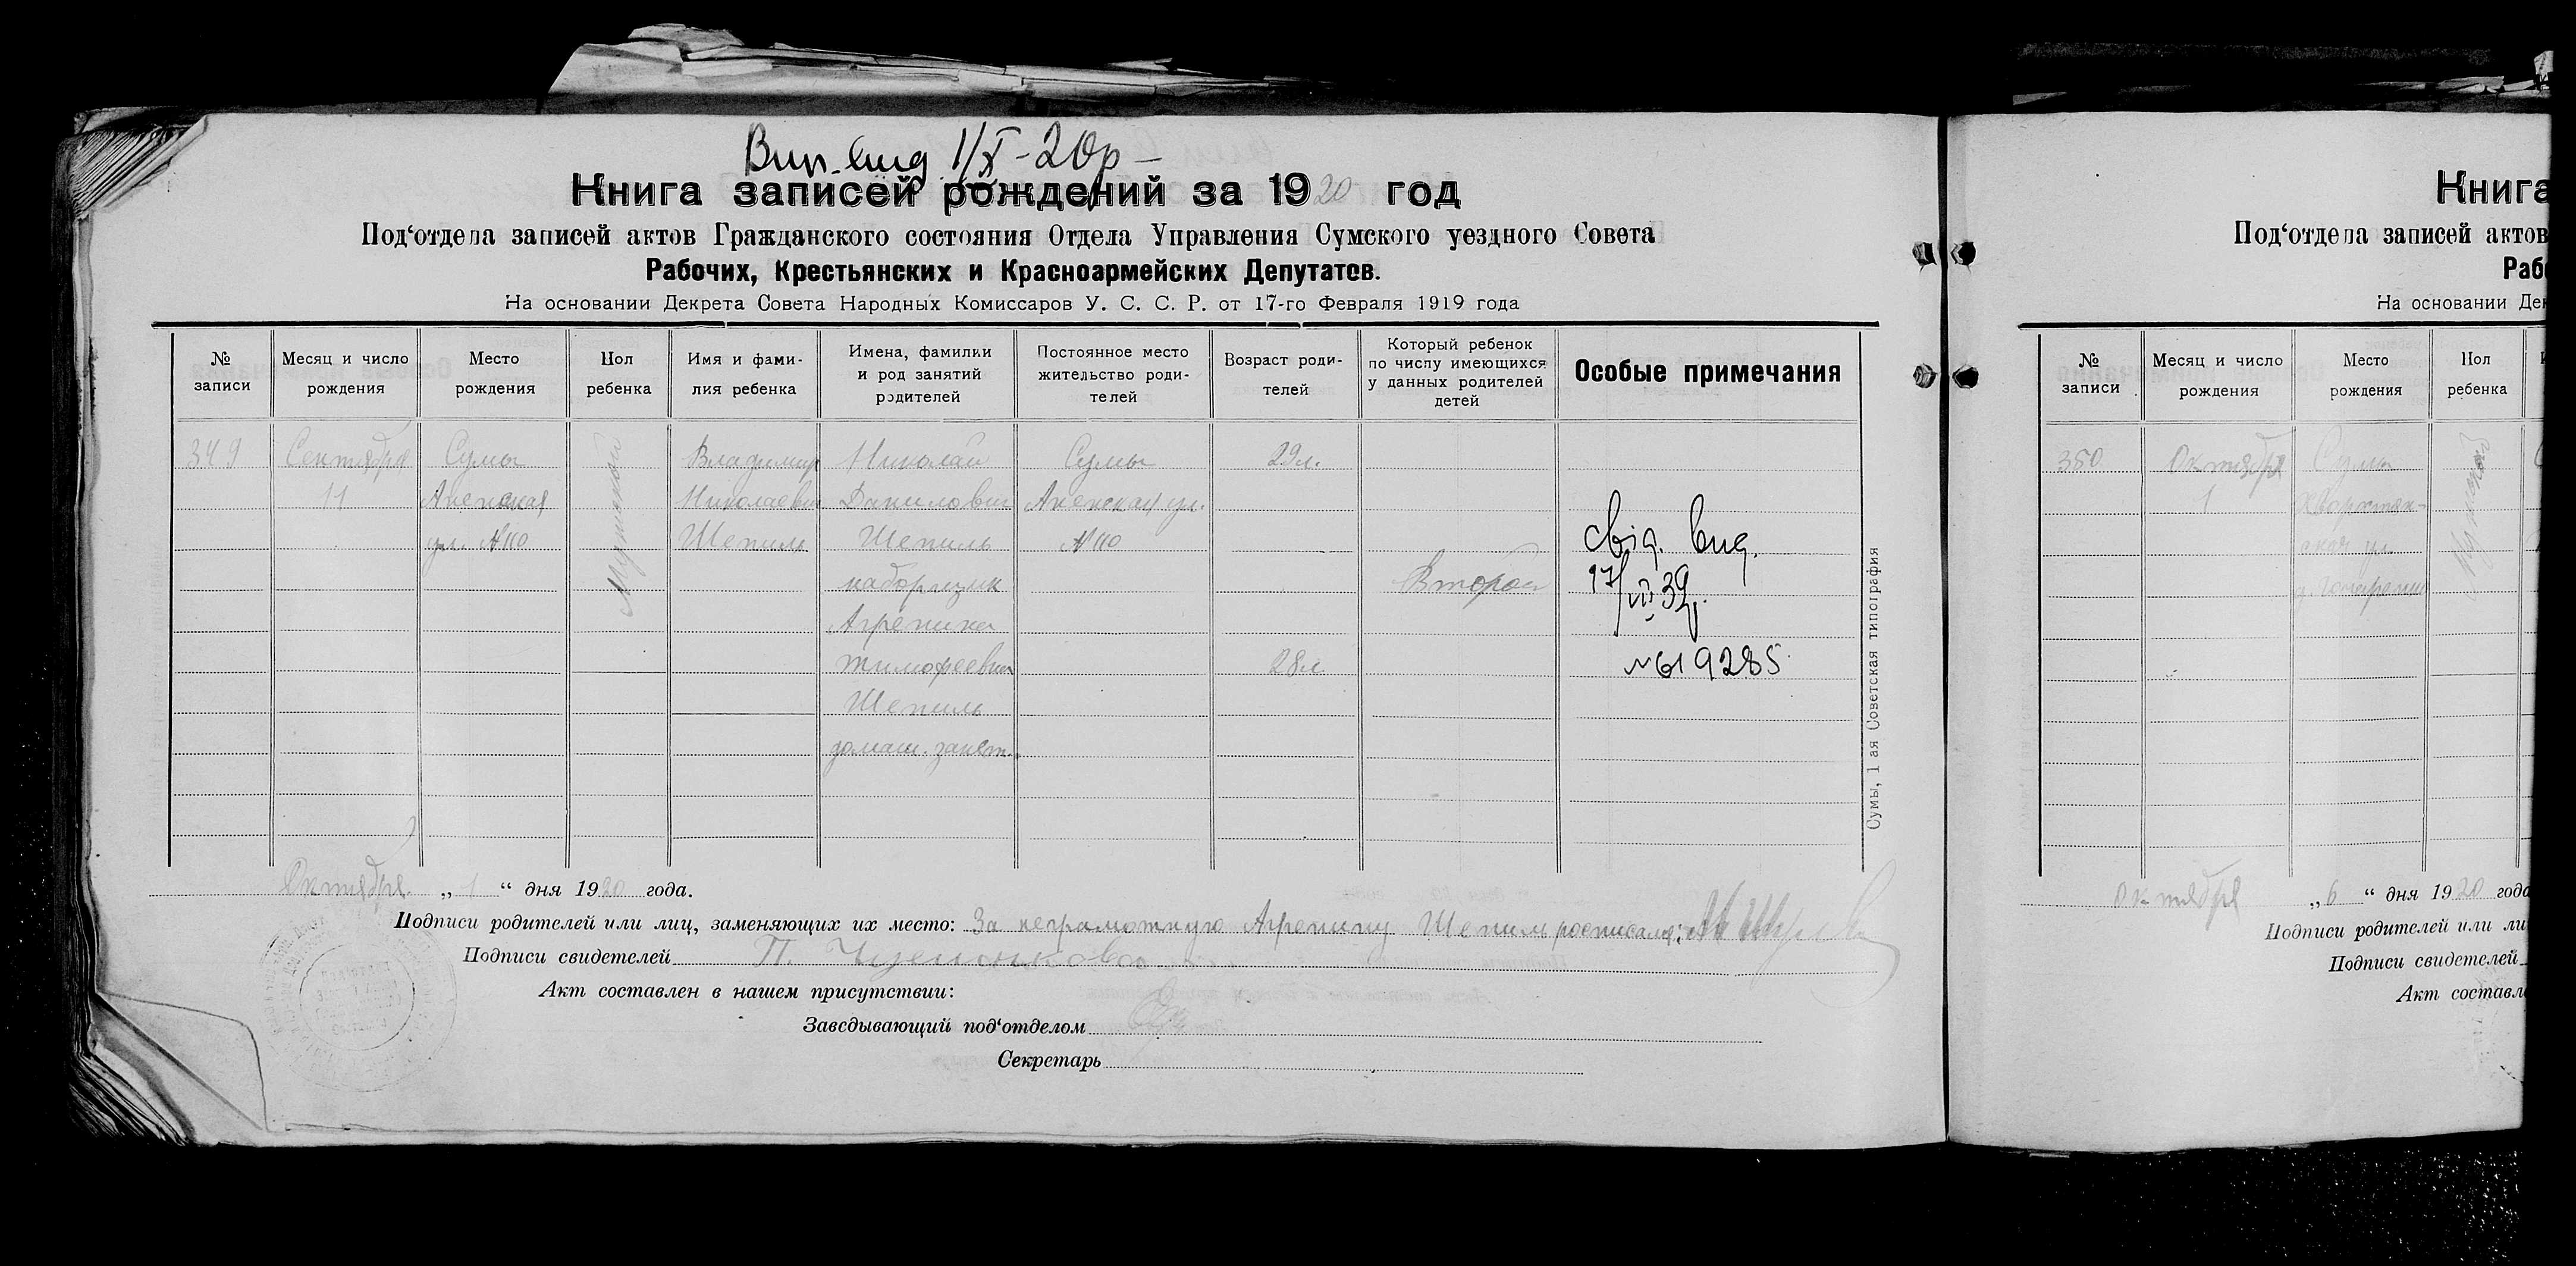 Вип. вид. 1/X - 20р -
Книга записей рождений за 1920 год
Под‘отдела записей актов Гражданского состояния Отдела Управления Сумского уездного Совета
Рабочих, Крестьянских и Красноармейских Депутатов.
На основании Декрета Совета Народных Комиссаров У. С. С. Р. от 17-го Февраля 1919 года
№ записи
Месяц и число рождения
Место рождения
Пол ребенка
Имя и фамилия ребенка
Имена, фамилки и род занятий родителей
Постоянное место жительство родителей
Возраст родителей
Который ребенок по числу имеющихся у данных родителей детей
Особые примечания
349
Сентября
11
Сумы
ул. №110
Мужской
Владимир
Николаевич
Шепиль
Николай
Данилович
Шепиль
наборщик
Агрепина
Тимофеевна
Шепиль
домаш. занят.
Сумы
№110
29 л.
28 л.
Второй
свід. вид.
17/VII 39р.
№619285
Сумы, 1 ая Советская типография
Октября „ 1 “ дня 1920 года.
Подписи родителей или лиц, заменяющих их место: За неграмотную Агрепину Шепиль
Подписи свидетелей П.
Акт составлен в нашем присутствии:
Заведывающий под‘отделом
Секретарь
Книга
Под‘отдела записей актов
Раб
На основании Дек
№ записи
Месяц и число рождения
Место рождения
Пол ребенка
350
Октября
1
Сумы
ул.
Мужской
октября „ 6 “ дня 1920 года
Подписи родителей или ли
Подписи свидетелей
Акт составле